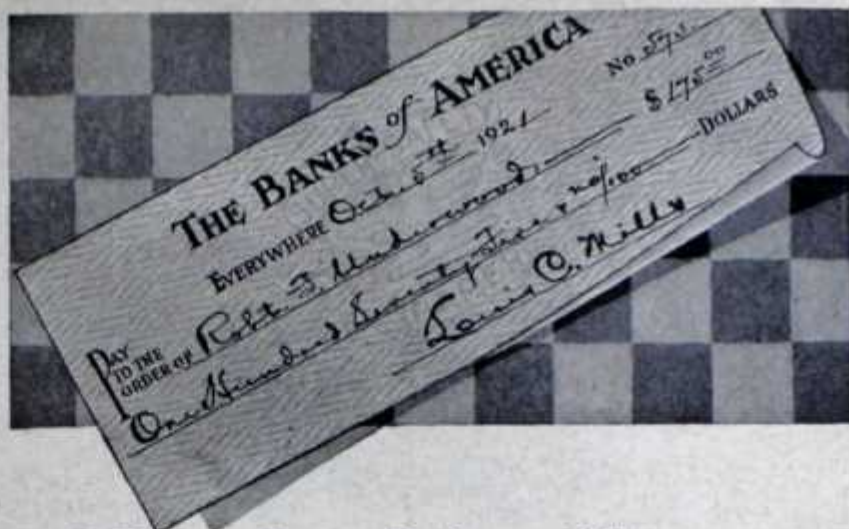 THE BANKS of AMERICA
No 573
EVERYWHERE Oct. 5th 1921
PAY TO THE ORDER OF Robt. F. Underwood $175.00
One Hundred Seventy Five & no/100 DOLLARS
Louis C. Mills